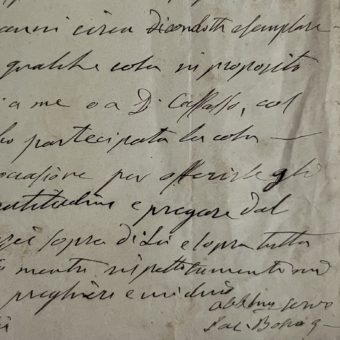 anni circa di condotta esemplare
qualche cosa in proposito
a me o a D. Cafasso, col
partecipata la cosa
occasione per offerirle gli
gratitudine e pregare dal
sopra di Lei e sopra tutta
mentre rispettutamente mi
preghiere e mi dico
servo
Sac. Bosco G